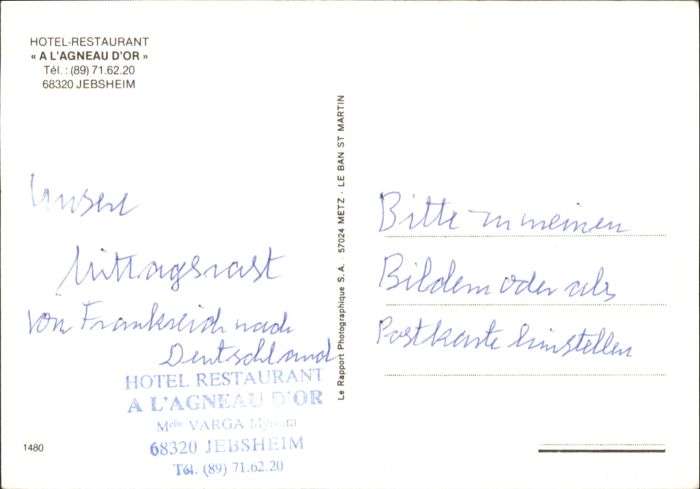 HOTEL-RESTAURANT
« A L'AGNEAU D'OR »
Tél. : (89) 71.62.20
68320 JEBSHEIM
Unsere
Mittagsrast
von Frankreich nach
Deutschland
HOTEL RESTAURANT
A L'AGNEAU D'OR
VARGA
68320 JEBSHEIM
Tél. (89) 71.62.20
1480
Le Rapport Photographique S.A. 57024 METZ - LE BAN ST MARTIN
Bitte zu meinen
Bildern oder als
Postkarte einstellen